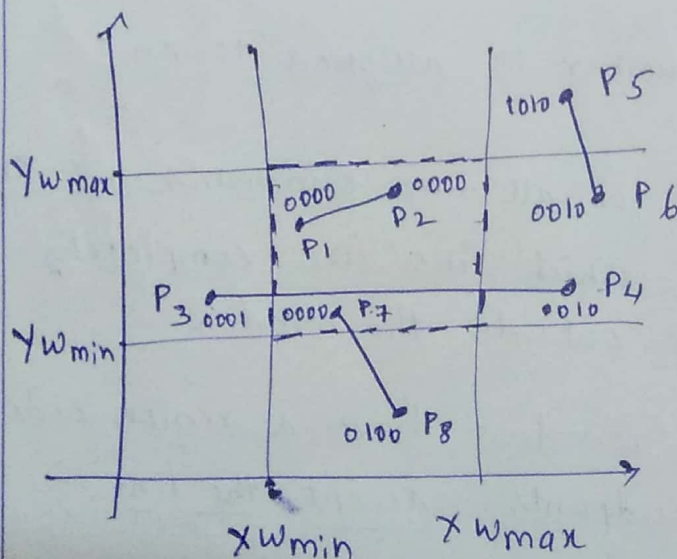 1010 P5
Ywmax
0000 0000
P1 P2
0010 P6
P3 P4
0001 0000 P.7 0010
Ywmin
0100 P8
Xwmin Xwmax